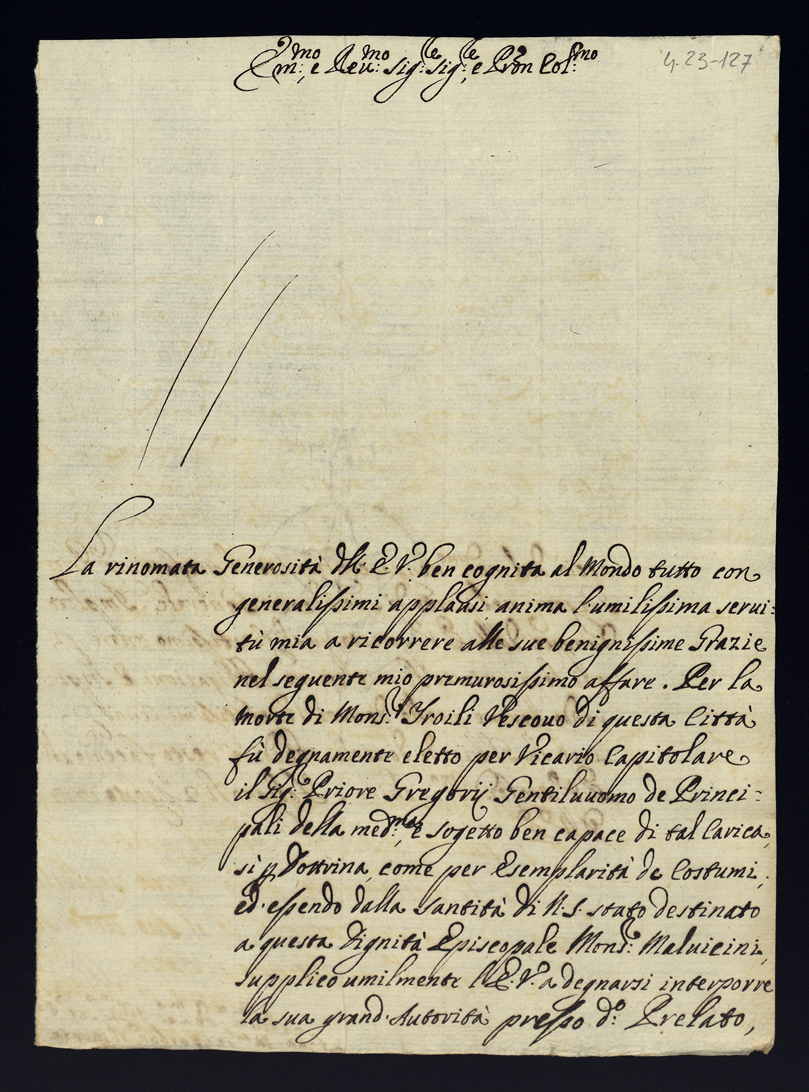 Em:mo e Reu:mo Sig:re Sig:re, e Pron Col:mo
4-23-127
La rinomata Generosità dell'E.V. ben cognita al Mondo tutto con
generalissimi applausi anima l'umilissima serui=
tù mia a ricorrere alle sue benignissime Grazie
nel seguente mio premurosissimo affare. Per la
morte di Mons:r Troili Vescouo di questa Città
fù degnamente eletto per Vicario Capitolare
il Sig: Priore Gregorij Gentiluuomo de Princi=
pali della med:ma, e sogetto ben capace di tal Carica,
sì p Dottrina, come per Esemplarità de Costumi;
ed essendo dalla Santità di N.S. stato destinato
a questa Dignità Episcopale Mons:r Maluicini,
supplico umilmente l'E.V. a degnarsi interporre
la sua grand'Autorità presso d:o Prelato,